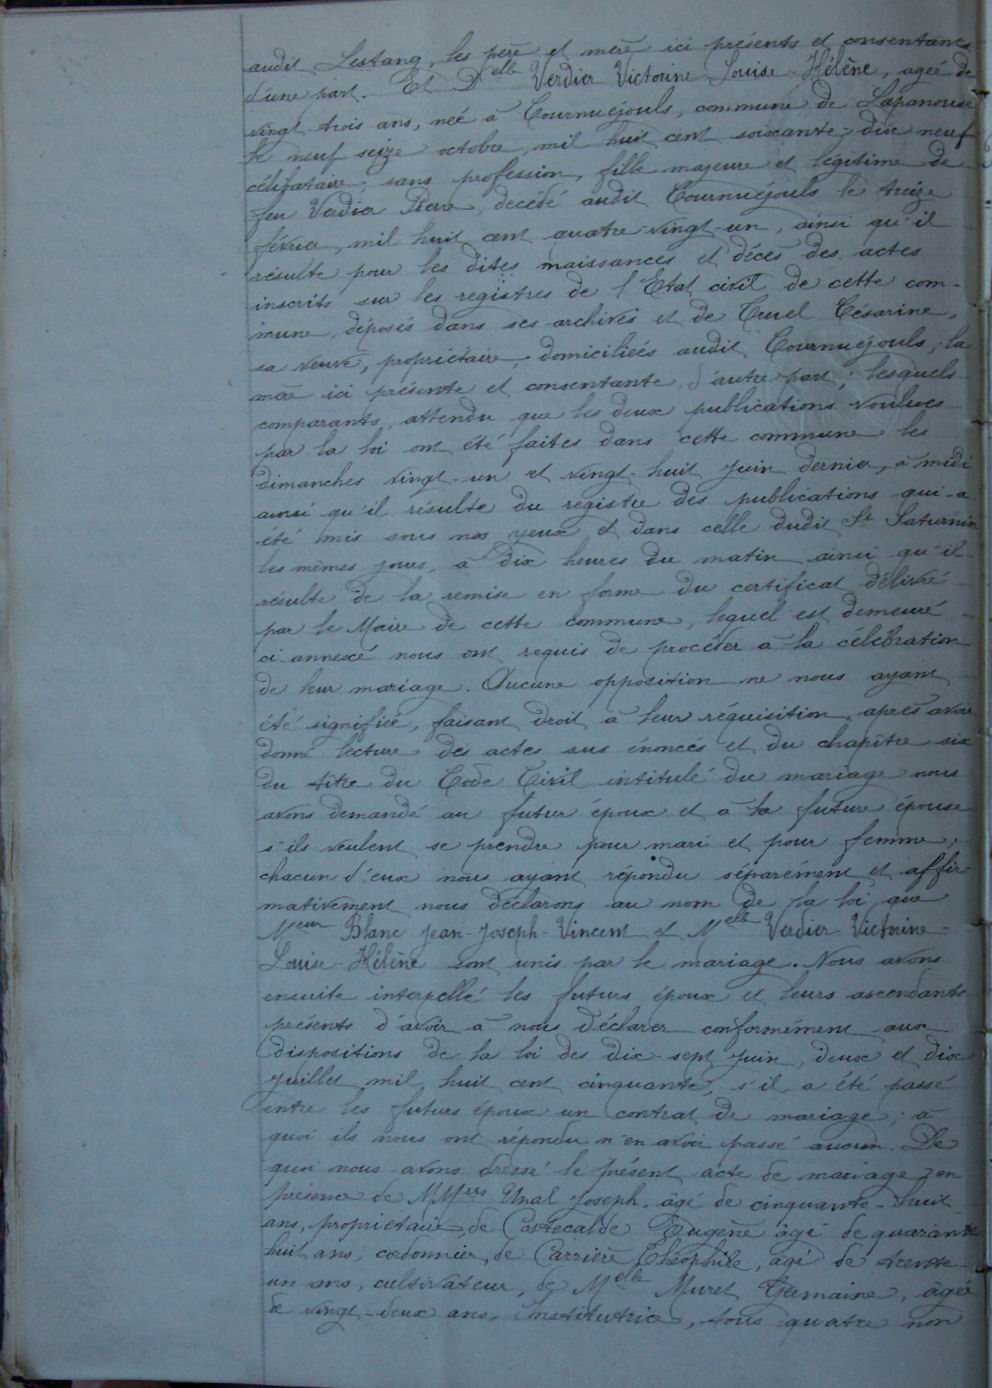 audit Lestang, les père et mère ici présents et consentants
d'une part. Et Delle Verdier Victorine Louise Hélène, ageé de
vingt trois ans, neé à Cournuéjouls, commune de Lapanouse
le neuf seize octobre, mil huit cent soixante-dix neuf
célibataire, sans profession, fille majeure et légitime de
feu Verdier Pierre, décédé audit Cournuéjouls le treize
février, mil huit cent quatre-vingt-un, ainsi qu'il
résulte pour les dites naissances et décès des actes
inscrits sur les registres de l'Etat civil de cette com-
mune, déposés dans ses archives et de Teucl Césarine,
sa veuve, propriétaire, domiciliées audit Cournuéjouls, la
mère ici présente et consentante, d'autre part; lesquels
comparants, attendu que les deux publications voulues
par la loi ont été faites dans cette commune les
dimanches vingt-un et vingt-huit juin dernier, à midi
ainsi qu'il résulte du registre des publications qui a
été mis sous nos yeux et dans celle dudit St Saturnin
les mêmes jours, à dix heures du matin ainsi qu'il
résulte de la remise en forme du certificat délivré
par le Maire de cette commune, lequel est demeuré
ci-annexé nous ont requis de procéder à la célébration
de leur mariage. Aucune opposition ne nous ayant
été signifiée, faisant droit à leur réquisition, après avoir
donné lecture des actes sus énoncés et du chapître six
du titre du Code Civil intitulé du mariage nous
avons demandé au futur époux et à la future épouse
s'ils veulent se prendre pour mari et pour femme,
chacun d'eux nous ayant répondu séparément et affir-
mativement nous déclarons au nom de la loi, que
Mieur Blanc Jean-Joseph-Vincent et Melle Verdier Victorine-
Louise-Hélène sont unis par le mariage. Nous avons
ensuite interpellé les futurs époux et leurs ascendants
présents d'avoir à nous déclarer conformément aux
dispositions de la loi des dix-sept juin, deux et dix
juillet mil huit cent cinquante, s'il a été passé
entre les futurs époux un contrat de mariage; à
quoi ils nous ont répondu n'en avoir passé aucun. De
quoi nous avons dressé le présent acte de mariage en
présence de MMrs Unal Joseph, âgé de cinquante-huit
ans, propriétaire, de Castecalde Eugène âgé de quarante
huit ans, cordonnier, de Carrière Théophile, agé de trente-
un ans, cultivateur, de Melle Muret Germaine, âgée
de vingt-deux ans, institutrice, tous quatre non